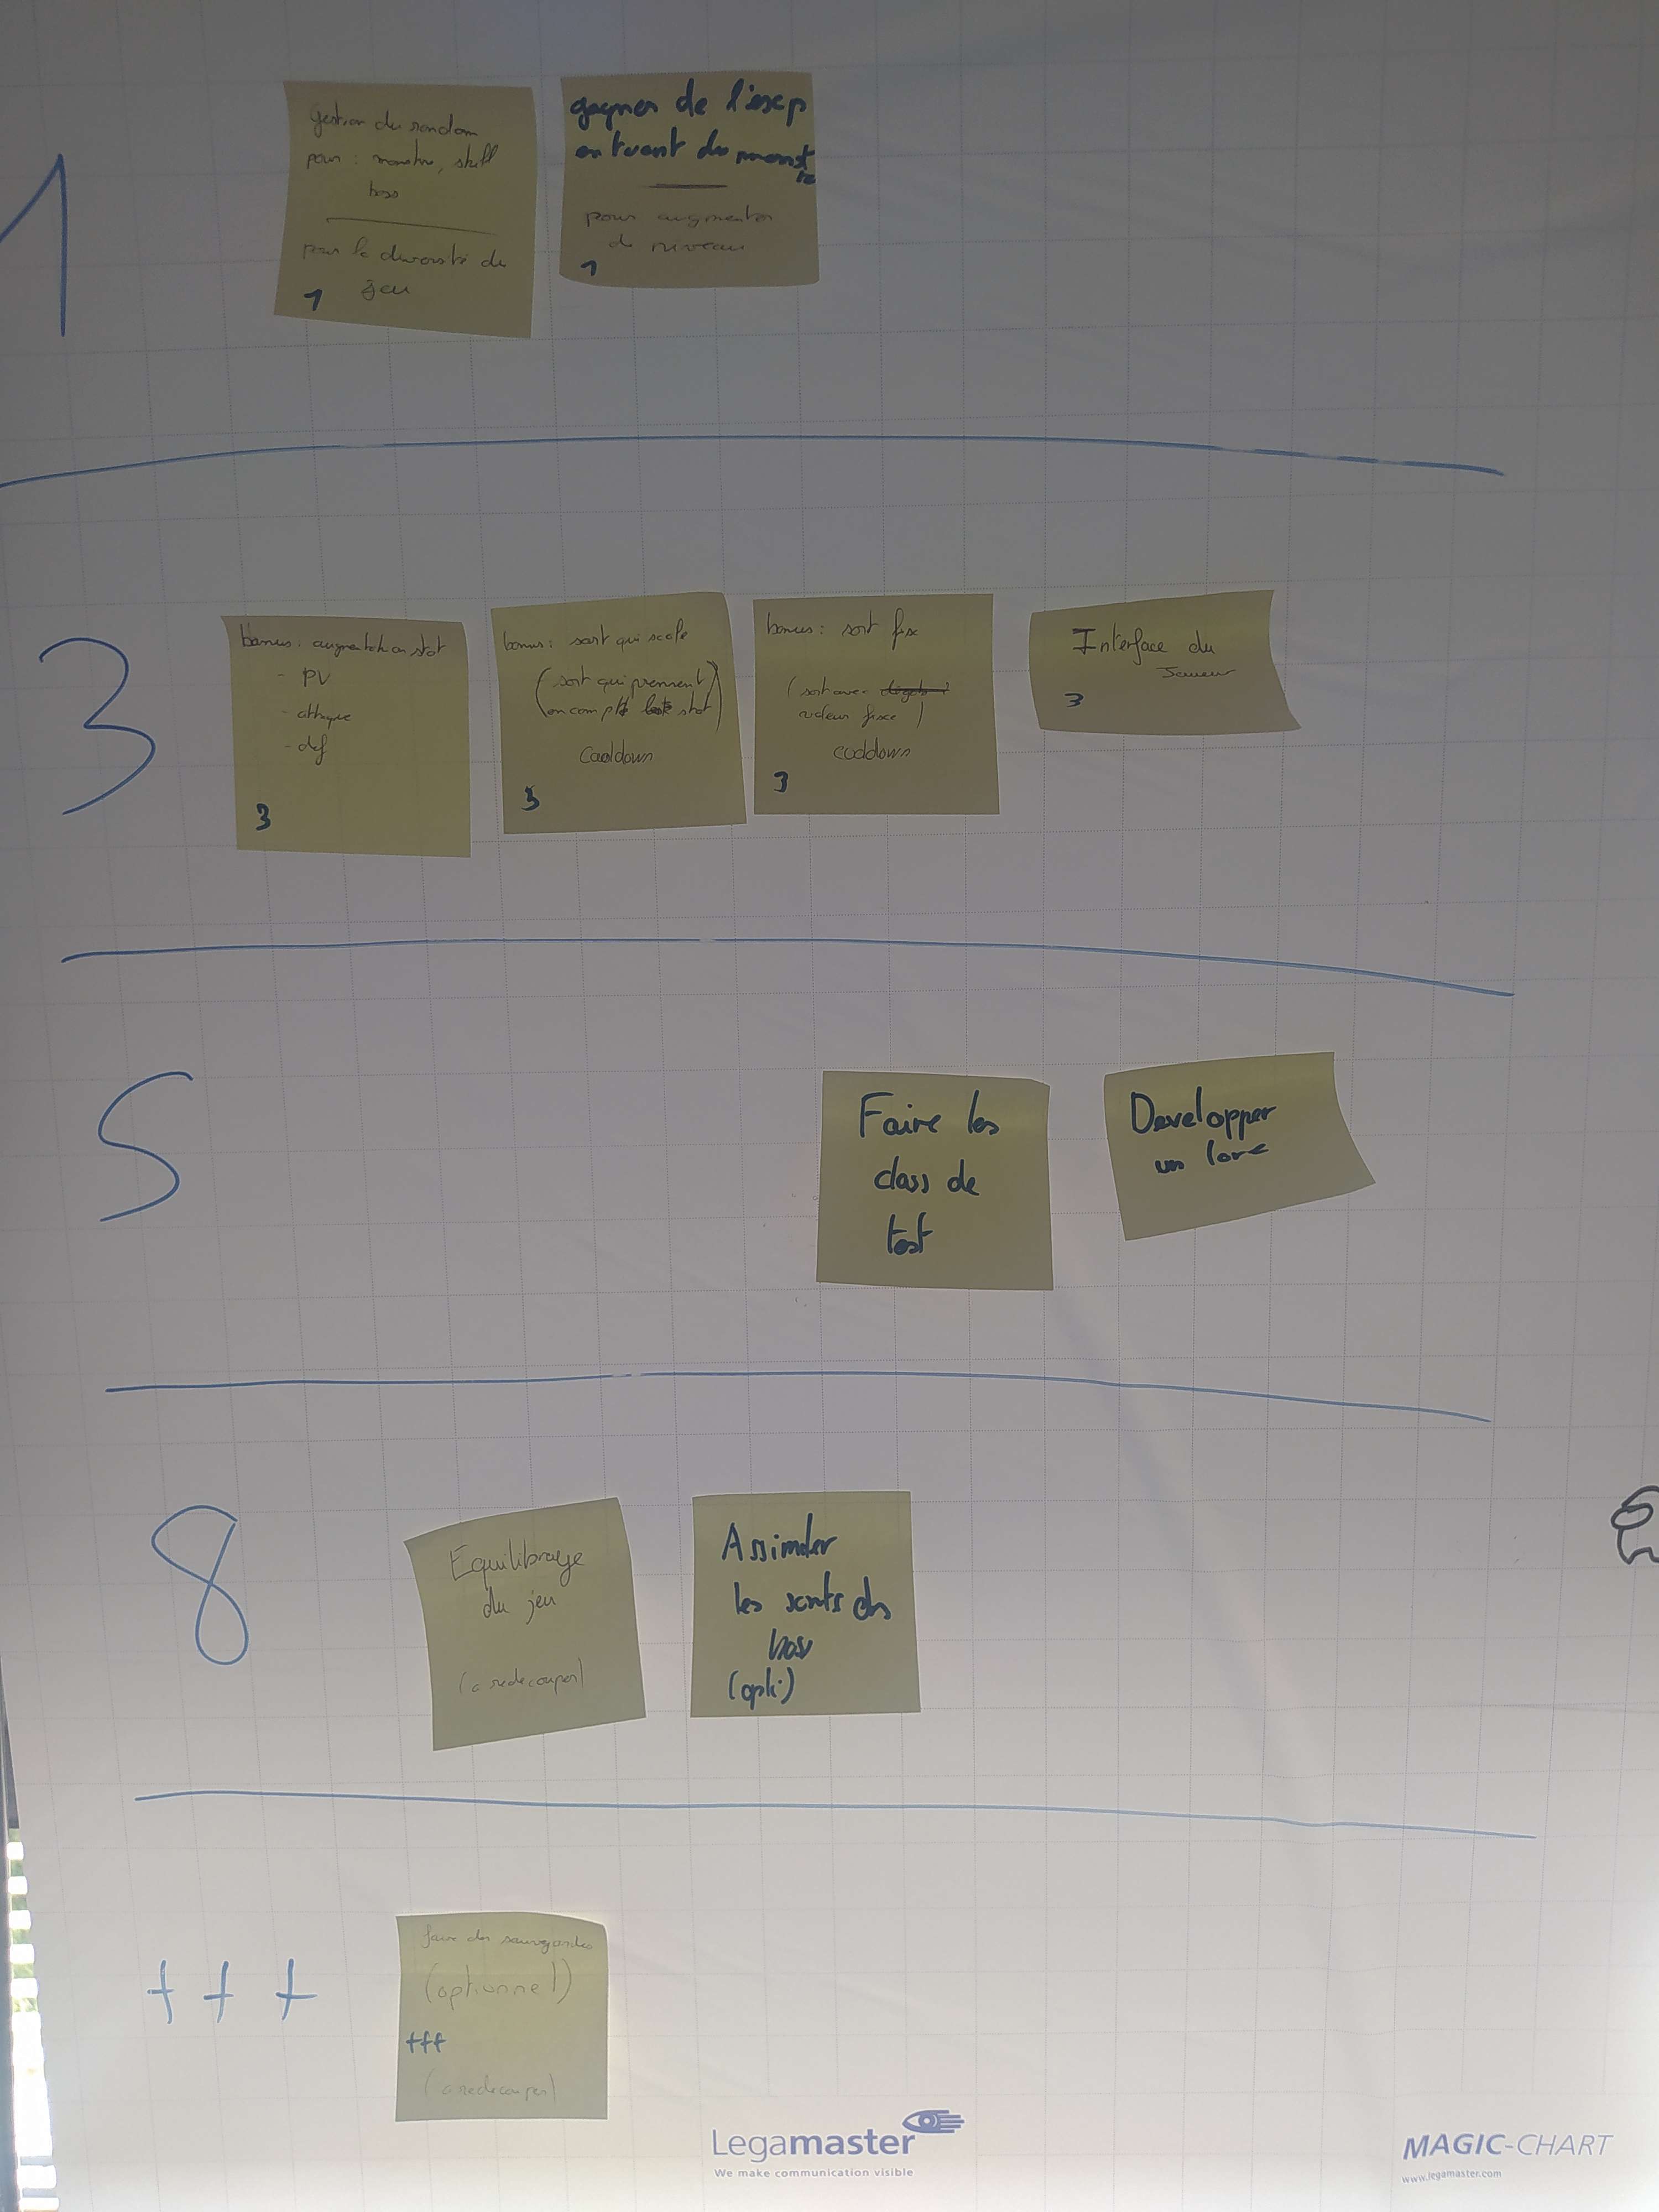 1
gestion du random
pour : monstre, skill
boss
pour la diversité du
jeu
1
gagner de l'exp
en tuant des monst
re
pour augmenter
de niveau
1
3
bonus: augmentation stat
- PV
- attaque
- def
3
bonus: sort qui scale
(sort qui prennent)
(en compte stat)
Cooldown
3
bonus: sort fixe
(sort avec
valeur fixe)
cooldown
3
Interface du
Joueur
3
5
Faire les
class de
test
Developper
un lore
8
Equilibrage
du jeu
(a redecouper)
Assimiler
les sorts des
boss
(opti)
+++
faire des sauvegardes
(optionnel)
+++
(a redecouper)
Legamaster
We make communication visible
MAGIC-CHART
www.legamaster.com